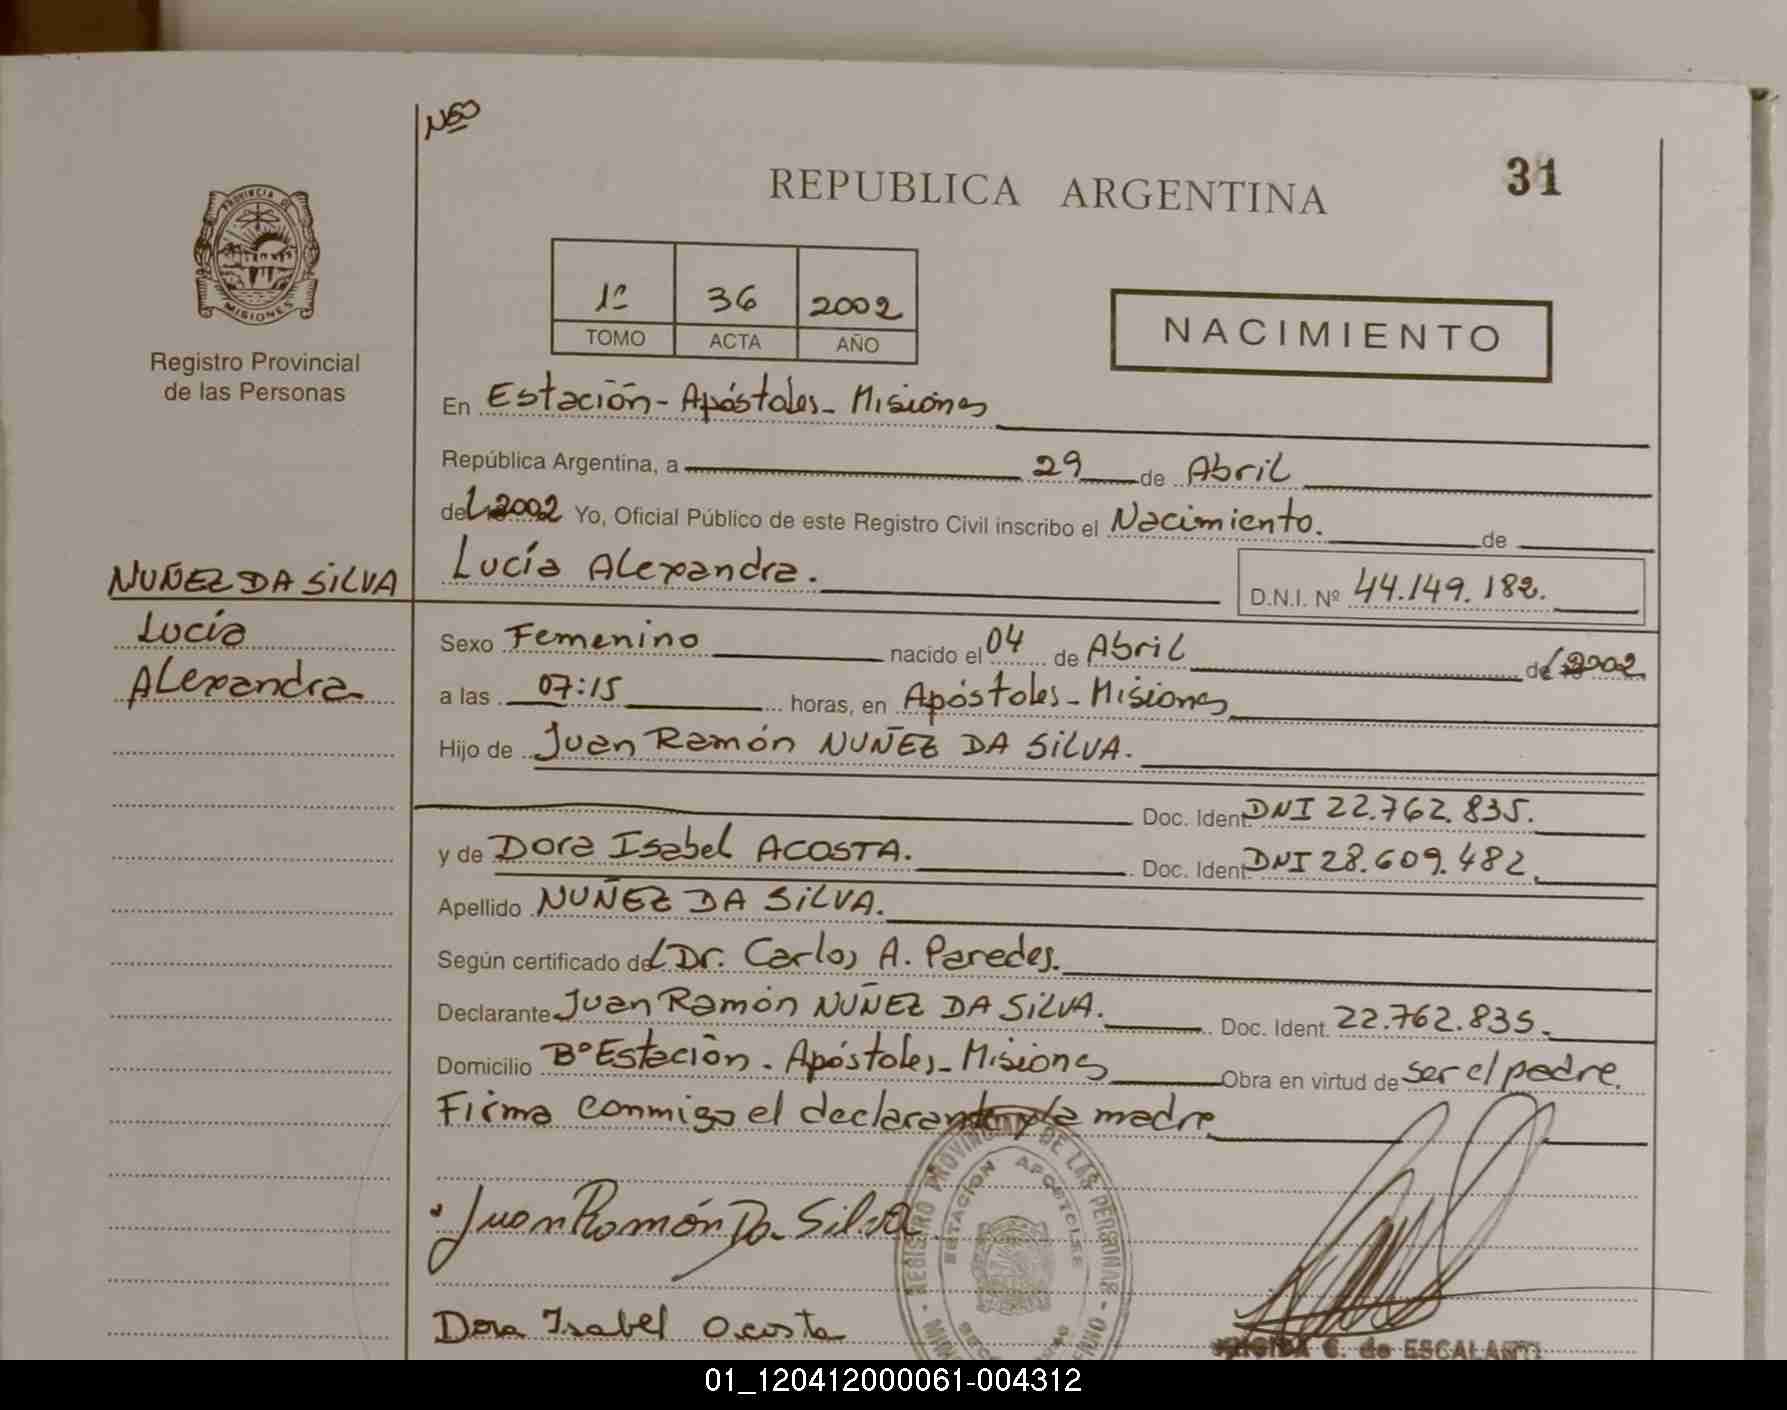 REPUBLICA ARGENTINA
31
PROVINCIA DE
MISIONES
Registro Provincial
de las Personas
1º 36 2002
TOMO ACTA AÑO
NACIMIENTO
En Estación - Apóstoles - Misiones
República Argentina, a 29 de Abril
del 2002 Yo, Oficial Público de este Registro Civil inscribo el Nacimiento. de
Lucía Alexandra. D.N.I. Nº 44.149.182.
NUÑEZ DA SILVA
Lucía
Alexandra
Sexo Femenino nacido el 04 de Abril de 2002
a las 07:15 horas, en Apóstoles - Misiones
Hijo de Juan Ramón NUÑEZ DA SILVA.
Doc. Ident. DNI 22.762.835.
y de Dora Isabel ACOSTA. Doc. Ident. DNI 28.609.482.
Apellido NUÑEZ DA SILVA.
Según certificado del Dr. Carlos A. Paredes.
Declarante Juan Ramón NUÑEZ DA SILVA. Doc. Ident. 22.762.835.
Domicilio Bº Estación - Apóstoles - Misiones Obra en virtud de ser el padre.
Firma conmigo el declarante y la madre
Juan Ramón Da Silva
REGISTRO PROVINCIAL DE LAS PERSONAS
ESTACIÓN APOSTOLES
Dora Isabel Acosta
C. de ESCALANTE
01_120412000061-004312